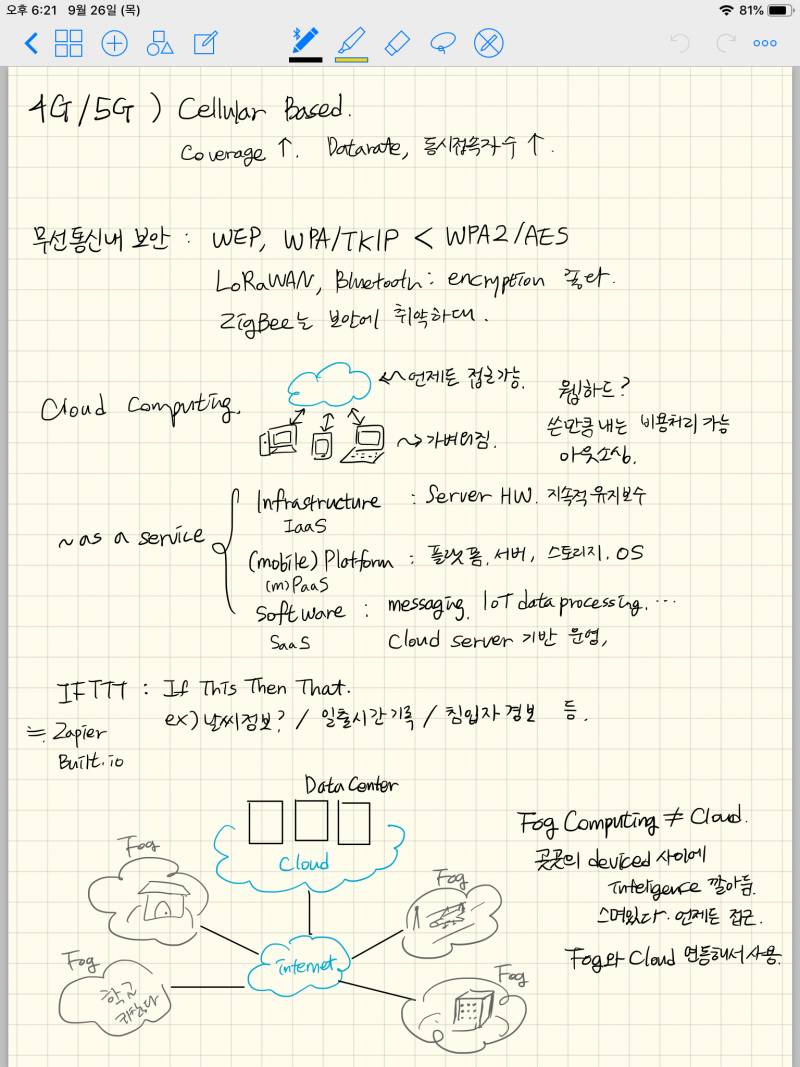 오후 6:21 9월 26일 (목)
81%
4G/5G ) Cellular Based.
Coverage ↑. Datarate, 동시접속자수 ↑.
무선통신내 보안 : WEP, WPA/TKIP < WPA2/AES
LoRaWAN, Bluetooth : encryption 좋다.
ZigBee는 보안에 취약하대.
Cloud Computing.
언제든 접근가능.
가벼워짐.
웹하드?
쓴만큼 내는 비용처리 가능
아웃소싱.
~as a service
Infrastructure : Server HW. 지속적 유지보수
IaaS
(mobile) Platform : 플랫폼, 서버, 스토리지, OS
(m)PaaS
Software : messaging, IoT data processing, ...
SaaS
Cloud server 기반 운영,
IFTTT : If This Then That.
ex) 날씨정보? / 일출시간 기록 / 침입자 경보 등.
≒ Zapier
Built.io
Data Center
Cloud
Fog
Fog
internet
Fog
학교
Fog
Fog Computing ≠ Cloud.
곳곳의 deviced 사이에
Inteligence 깔아둠.
스며있다. 언제든 접근.
Fog와 Cloud 연동해서 사용.